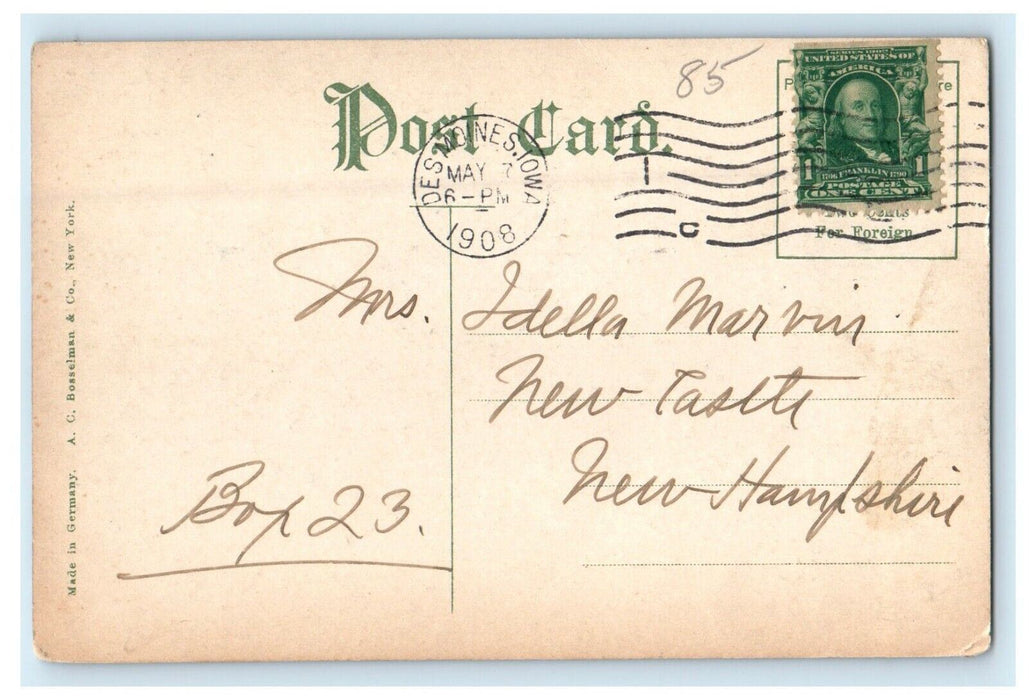 85
Post Card.
SERIES 1902
UNITED STATES OF
AMERICA
1 1706 FRANKLIN 1790 1
POSTAGE
ONE CENT
Two Cents
For Foreign
DES MOINES, IOWA
MAY 7
6-PM
1908
Mrs. Idella Marvin
New Castle
New Hampshire
Box 23.
Made in Germany. A. C. Bosselman & Co., New York.